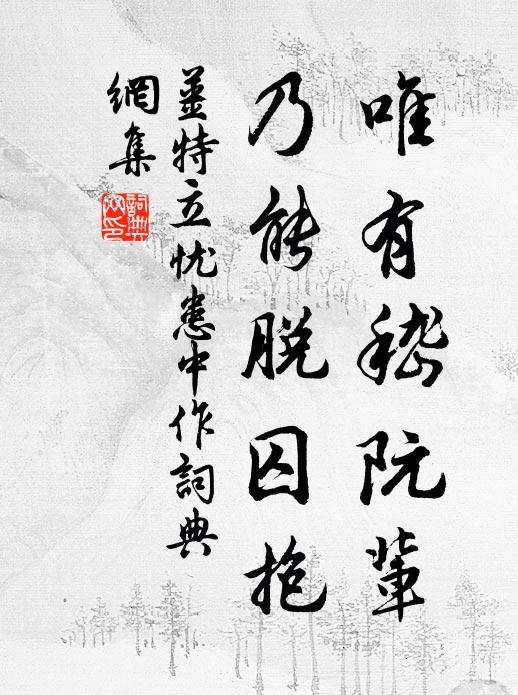 唯有嵇阮輩
乃能脫囚抱
姜特立忧患中作詞典
網集
詞典
网印